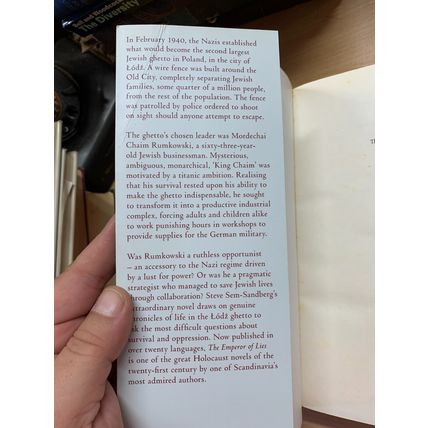 Bell and Woodcock
The Diversity
In February 1940, the Nazis established
what would become the second largest
Jewish ghetto in Poland, in the city of
Łódź. A wire fence was built around the
Old City, completely separating Jewish
families, some quarter of a million people,
from the rest of the population. The fence
was patrolled by police ordered to shoot
on sight should anyone attempt to escape.
The ghetto's chosen leader was Mordechai
Chaim Rumkowski, a sixty-three-year-
old Jewish businessman. Mysterious,
ambiguous, monarchical, 'King Chaim' was
motivated by a titanic ambition. Realising
that his survival rested upon his ability to
make the ghetto indispensable, he sought
to transform it into a productive industrial
complex, forcing adults and children alike
to work punishing hours in workshops to
provide supplies for the German military.
Was Rumkowski a ruthless opportunist
– an accessory to the Nazi regime driven
by a lust for power? Or was he a pragmatic
strategist who managed to save Jewish lives
through collaboration? Steve Sem-Sandberg's
extraordinary novel draws on genuine
chronicles of life in the Łódź ghetto to
ask the most difficult questions about
survival and oppression. Now published in
over twenty languages, The Emperor of Lies
is one of the great Holocaust novels of the
twenty-first century by one of Scandinavia's
most admired authors.